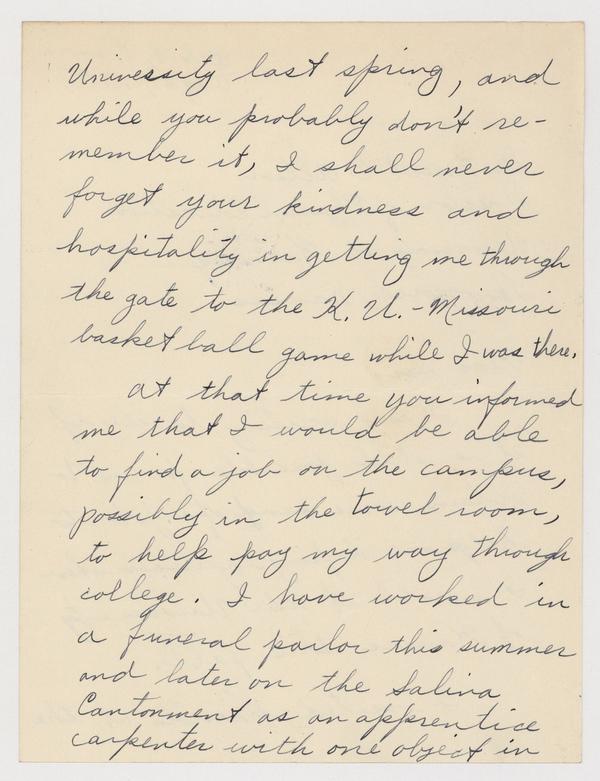 University last spring, and
while you probably don't re-
member it, I shall never
forget your kindness and
hospitality in getting me through
the gate to the K. U. - Missouri
basket ball game while I was there.
At that time you informed
me that I would be able
to find a job on the campus,
possibly in the towel room,
to help pay my way through
college. I have worked in
a funeral parlor this summer
and later on the Salina
Cantonment as an apprentice
carpenter with one object in